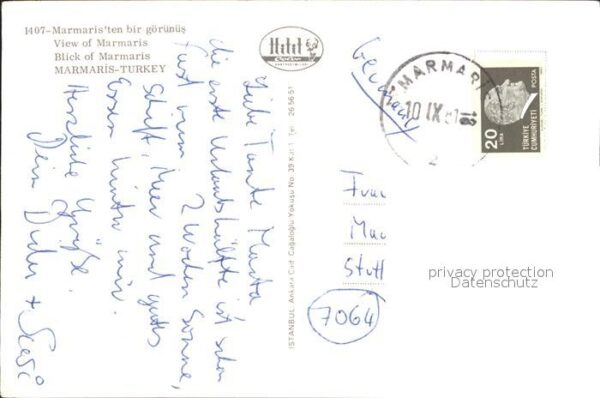 1407-Marmaris'ten bir görünüş
View of Marmaris
Blick of Marmaris
MARMARİS-TURKEY
Hitit
Color
İSTANBUL: Ankara Cad. Cağaloğlu Yokuşu No. 39 Kat. 1 Tel: 26 56 51
Liebe Tante Marta
die erste Urlaubshälfte ist schon
fast rum. 2 Wochen Sonne,
Schiff, Meer und gutes
Essen hinter mir.
Herzliche Grüße
Dein
Germany
MARMARİS
10 IX 81 18
2
20
LIRA
TÜRKİYE
CUMHURİYETİ
POSTA
Frau
Mar
Stutt
7064
privacy protection
Datenschutz